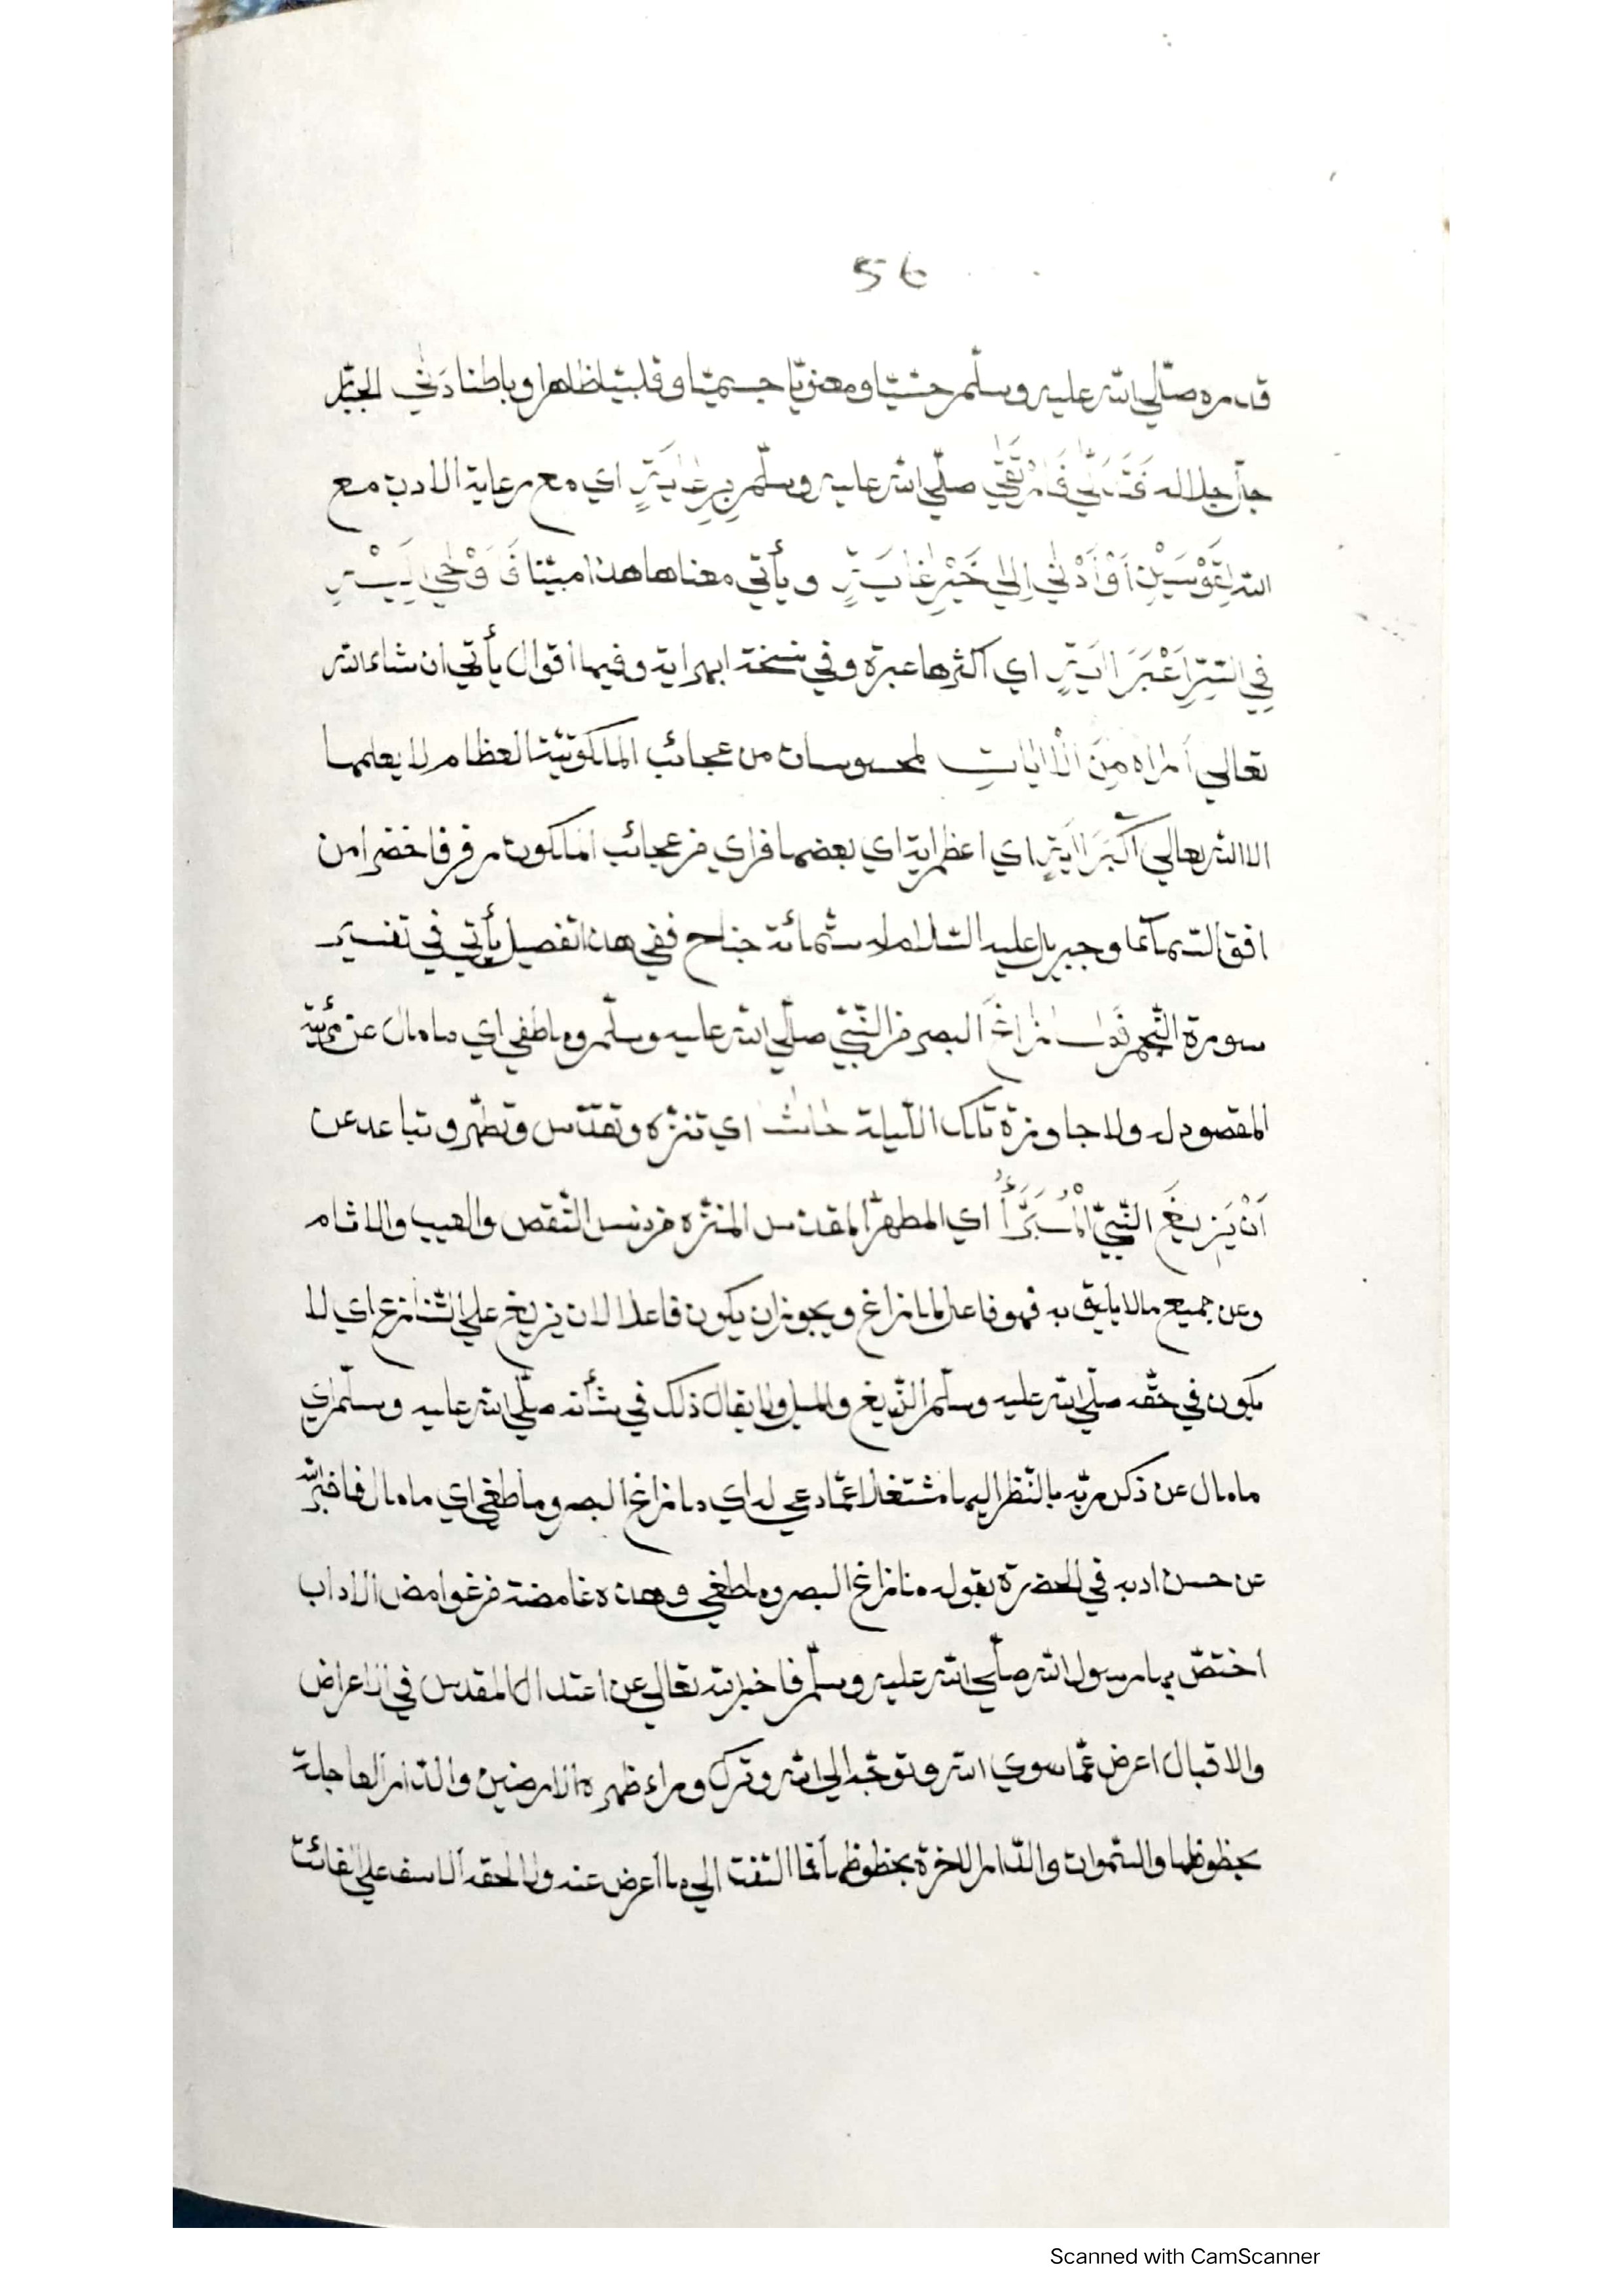 56
قدره صلّي الله عليه وسلّم حسّيّا ومعنويّا جسميّا وقلبيّا ظاهرا وباطنا دَنَي الجبّار
جلّ جلاله فَتَدَلَّي فَارْتَقَي صلّي الله عليه وسلّم بِرِعَايَةٍ اي مع رعاية الادب مع
الله لِقَوْسَيْنِ اَوْ اَدْنَي اِلَي خَيْرِ غَايَةٍ ويأتي معناها هذا مبيّنا فَاَوْحَي اِلَيْهِ
فِي السِّرِّ اَعْبَرَ اايَةٍ اي اكثرها عبرة وفي نسخة ابهر اية وفيها اقوال يأتي ان شاء الله
تعالي اَرَاهُ مِنَ الْاايَاتِ من عجائب الملكوتيّة العظام لا يعلمها
الا الله تعالي اَكْبَرَ اايَةٍ اي اعظم اية اي بعضها فراي من عجائب الملكوت رفرفا خضرا من
افق السّمآء وجبريل عليه السّلام له ستّمائة جناح ففي هذا تفصيل يأتي في تفسير
سورة النّجم زَاغَ البصر من النّبيّ صلّي الله عليه وسلّم وما طغي اي ما مال عن
المقصود له ولا جاوزه تلك اللّيلة حاشَا اي تنزّه وتقدّس وتطهّر وتباعد عن
اَنْ يَزِيغَ النَّبِيُّ الْمُبَرَّأُ اي المطهّر المقدّس المنزّه من دنس النّقص والعيب والاثام
وعن جميع ما لا يليق به فهو فاعل لما زاغ ويجوز ان يكون فاعلا لان يزيغ علي التّنازع اي لا
يكون في حقّه صلّي الله عليه وسلّم الزّيغ والميل ولا يقال ذلك في شأنه صلّي الله عليه وسلّم اي
ما مال عن ذكر ربّه بالنّظر اليها مشتغلا عمّا دعي له اي ما زاغ البصر وما طغي اي ما مال فاخبر الله
عن حسن ادبه في الحضرة بقوله ما زاغ البصر وما طغي وهذه غامضة من غوامض الاداب
اختصّ بها رسول الله صلّي الله عليه وسلّم فاخبر الله تعالي عن اعتدال المقدس في الاعراض
والاقبال اعرض عمّا سوي الله وتوجّه الي الله وترك وراء ظهره الارضين والدّار العاجلة
بحظوظها والسّموات والدّار الاخرة بحظوظها فما التفت الي ما اعرض عنه ولا لحقه الاسف علي الفائت
Scanned with CamScanner